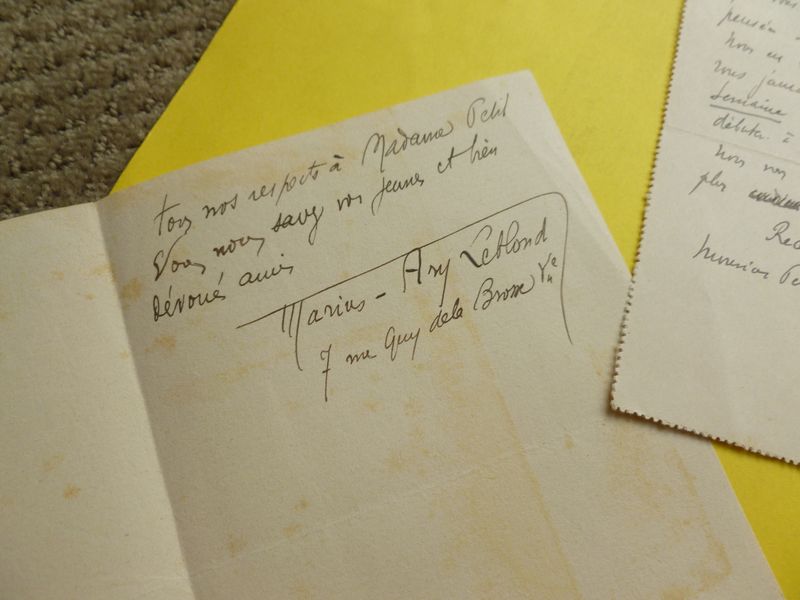 Tous nos respects à Madame Petit
Vous nous savez vos jeunes et bien
dévoués amis
Marius - Ary Leblond
7 rue Guy de la Brosse Ve
pensée
Nous en
vous jamais
Semaine
débuter à
Nous vos
plus